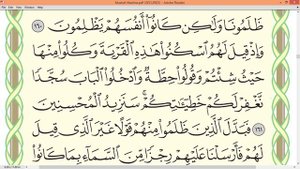 Mushaf Madina.pdf (SECURED) - Adobe Reader
ظَلَمُونَا وَلَٰكِن كَانُوٓا۟ أَنفُسَهُمْ يَظْلِمُونَ ١٦٠
وَإِذْ قِيلَ لَهُمُ ٱسْكُنُوا۟ هَٰذِهِ ٱلْقَرْيَةَ وَكُلُوا۟ مِنْهَا
حَيْثُ شِئْتُمْ وَقُولُوا۟ حِطَّةٌ وَٱدْخُلُوا۟ ٱلْبَابَ سُجَّدًا
نَّغْفِرْ لَكُمْ خَطِيٓـَٰٔتِكُمْ ۚ سَنَزِيدُ ٱلْمُحْسِنِينَ ١٦١
فَبَدَّلَ ٱلَّذِينَ ظَلَمُوا۟ مِنْهُمْ قَوْلًا غَيْرَ ٱلَّذِى قِيلَ
لَهُمْ فَأَرْسَلْنَا عَلَيْهِمْ رِجْزًا مِّنَ ٱلسَّمَآءِ بِمَا كَانُوا۟